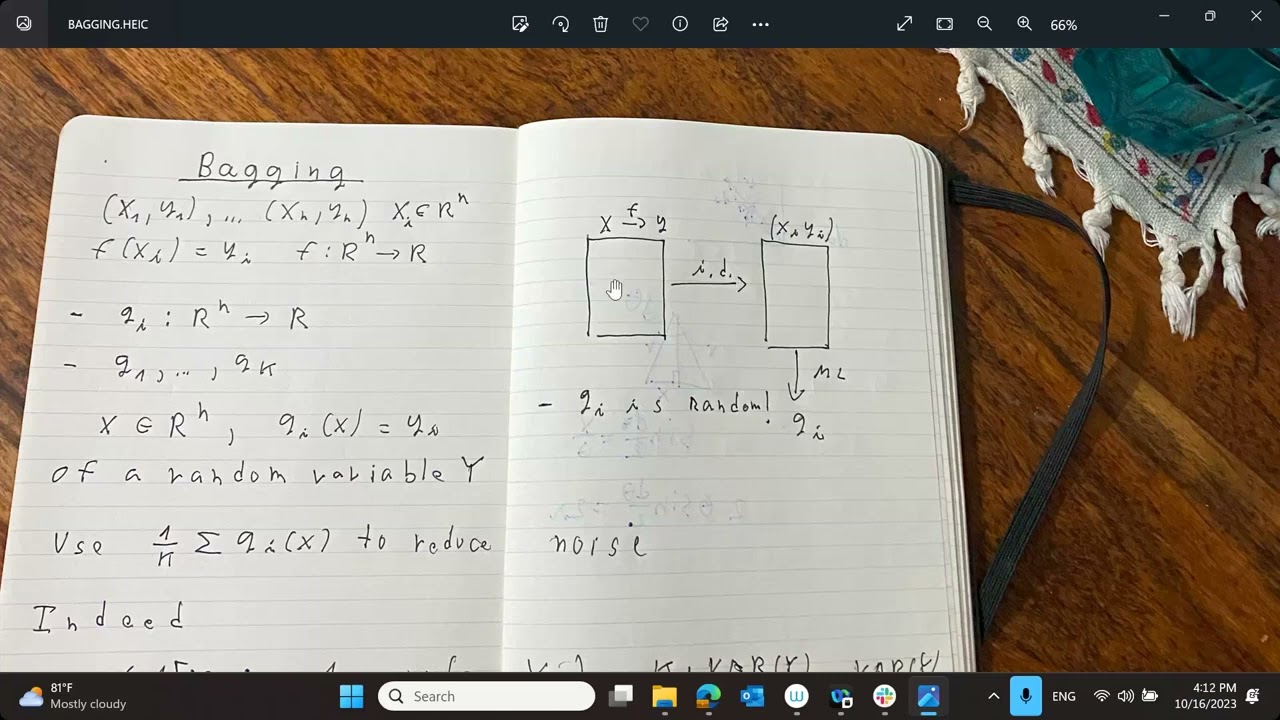 BAGGING.HEIC
66%
Bagging
(X₁, y₁), ... (Xₙ, yₙ) Xᵢ ∈ Rⁿ
f(Xᵢ) = yᵢ f : Rⁿ → R
- gᵢ : Rⁿ → R
- g₁, ..., gK
X ∈ Rⁿ, gᵢ(X) = yᵢ
of a random variable Y
Use 1/K Σ gᵢ(X) to reduce noise
Indeed
X →f y
(Xᵢ yᵢ)
i.d.
ML
- gᵢ is random!
gᵢ
81°F
Mostly cloudy
Search
ENG
4:12 PM
10/16/2023